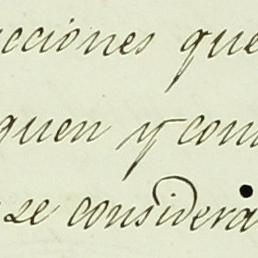 cciones que
quen y con
se considera